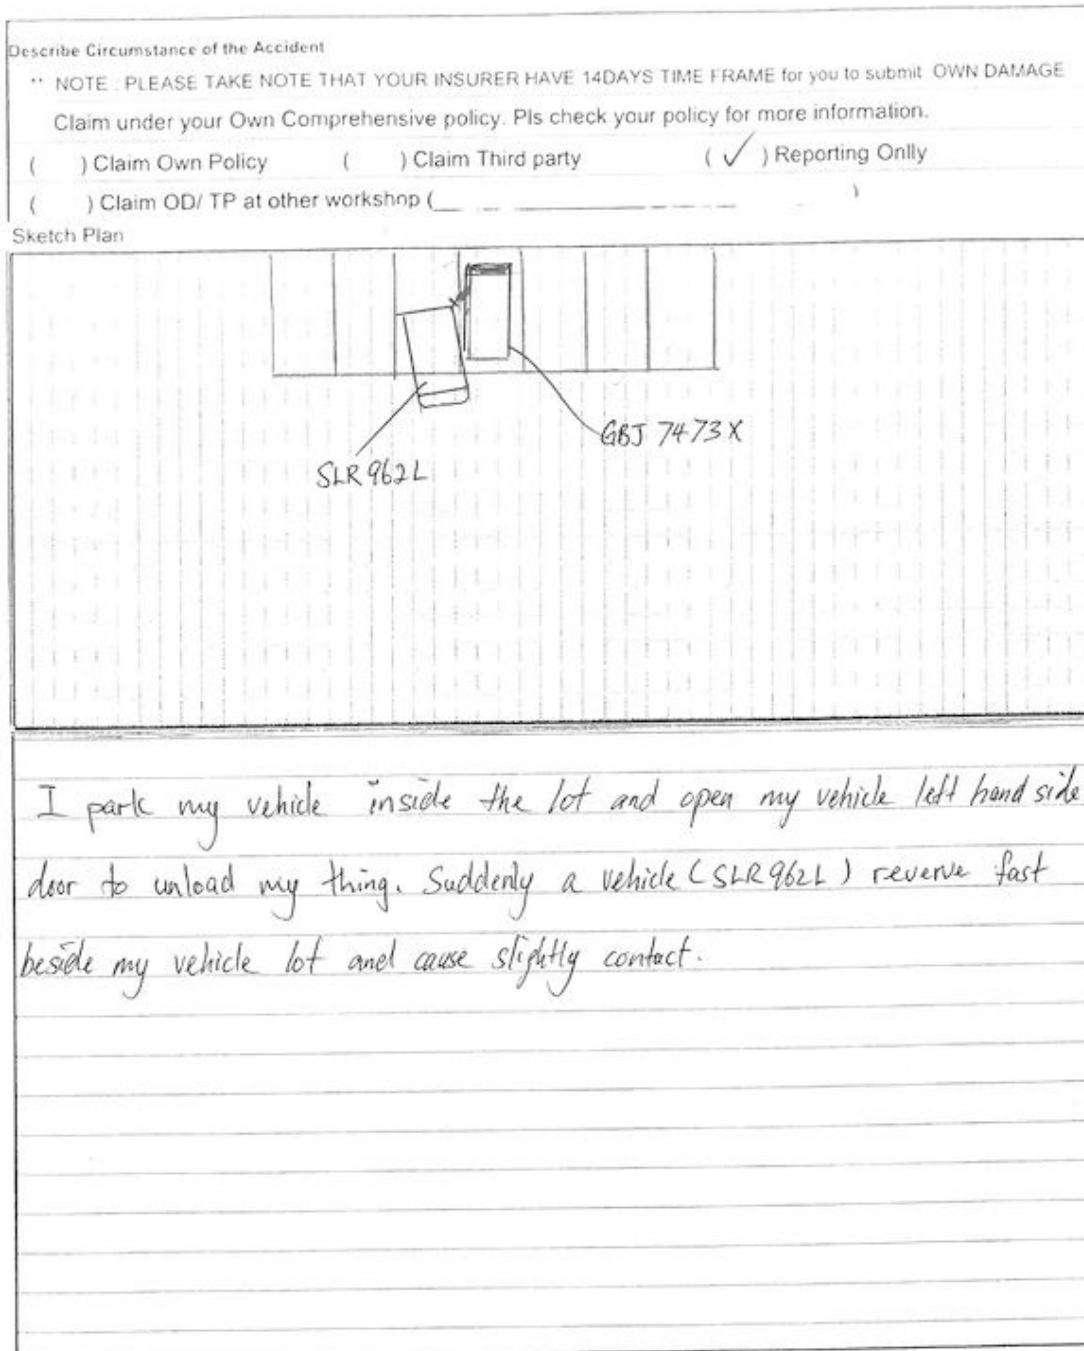 Describe Circumstance of the Accident
** NOTE : PLEASE TAKE NOTE THAT YOUR INSURER HAVE 14DAYS TIME FRAME for you to submit OWN DAMAGE
Claim under your Own Comprehensive policy. Pls check your policy for more information.
( ) Claim Own Policy ( ) Claim Third party ( ✓ ) Reporting Onlly
( ) Claim OD/ TP at other workshop (____________________ )
Sketch Plan
GBJ 7473X
SLR962L
I park my vehicle inside the lot and open my vehicle left hand side
door to unload my thing. Suddenly a vehicle (SLR962L) reverve fast
beside my vehicle lot and cause slightly contact.